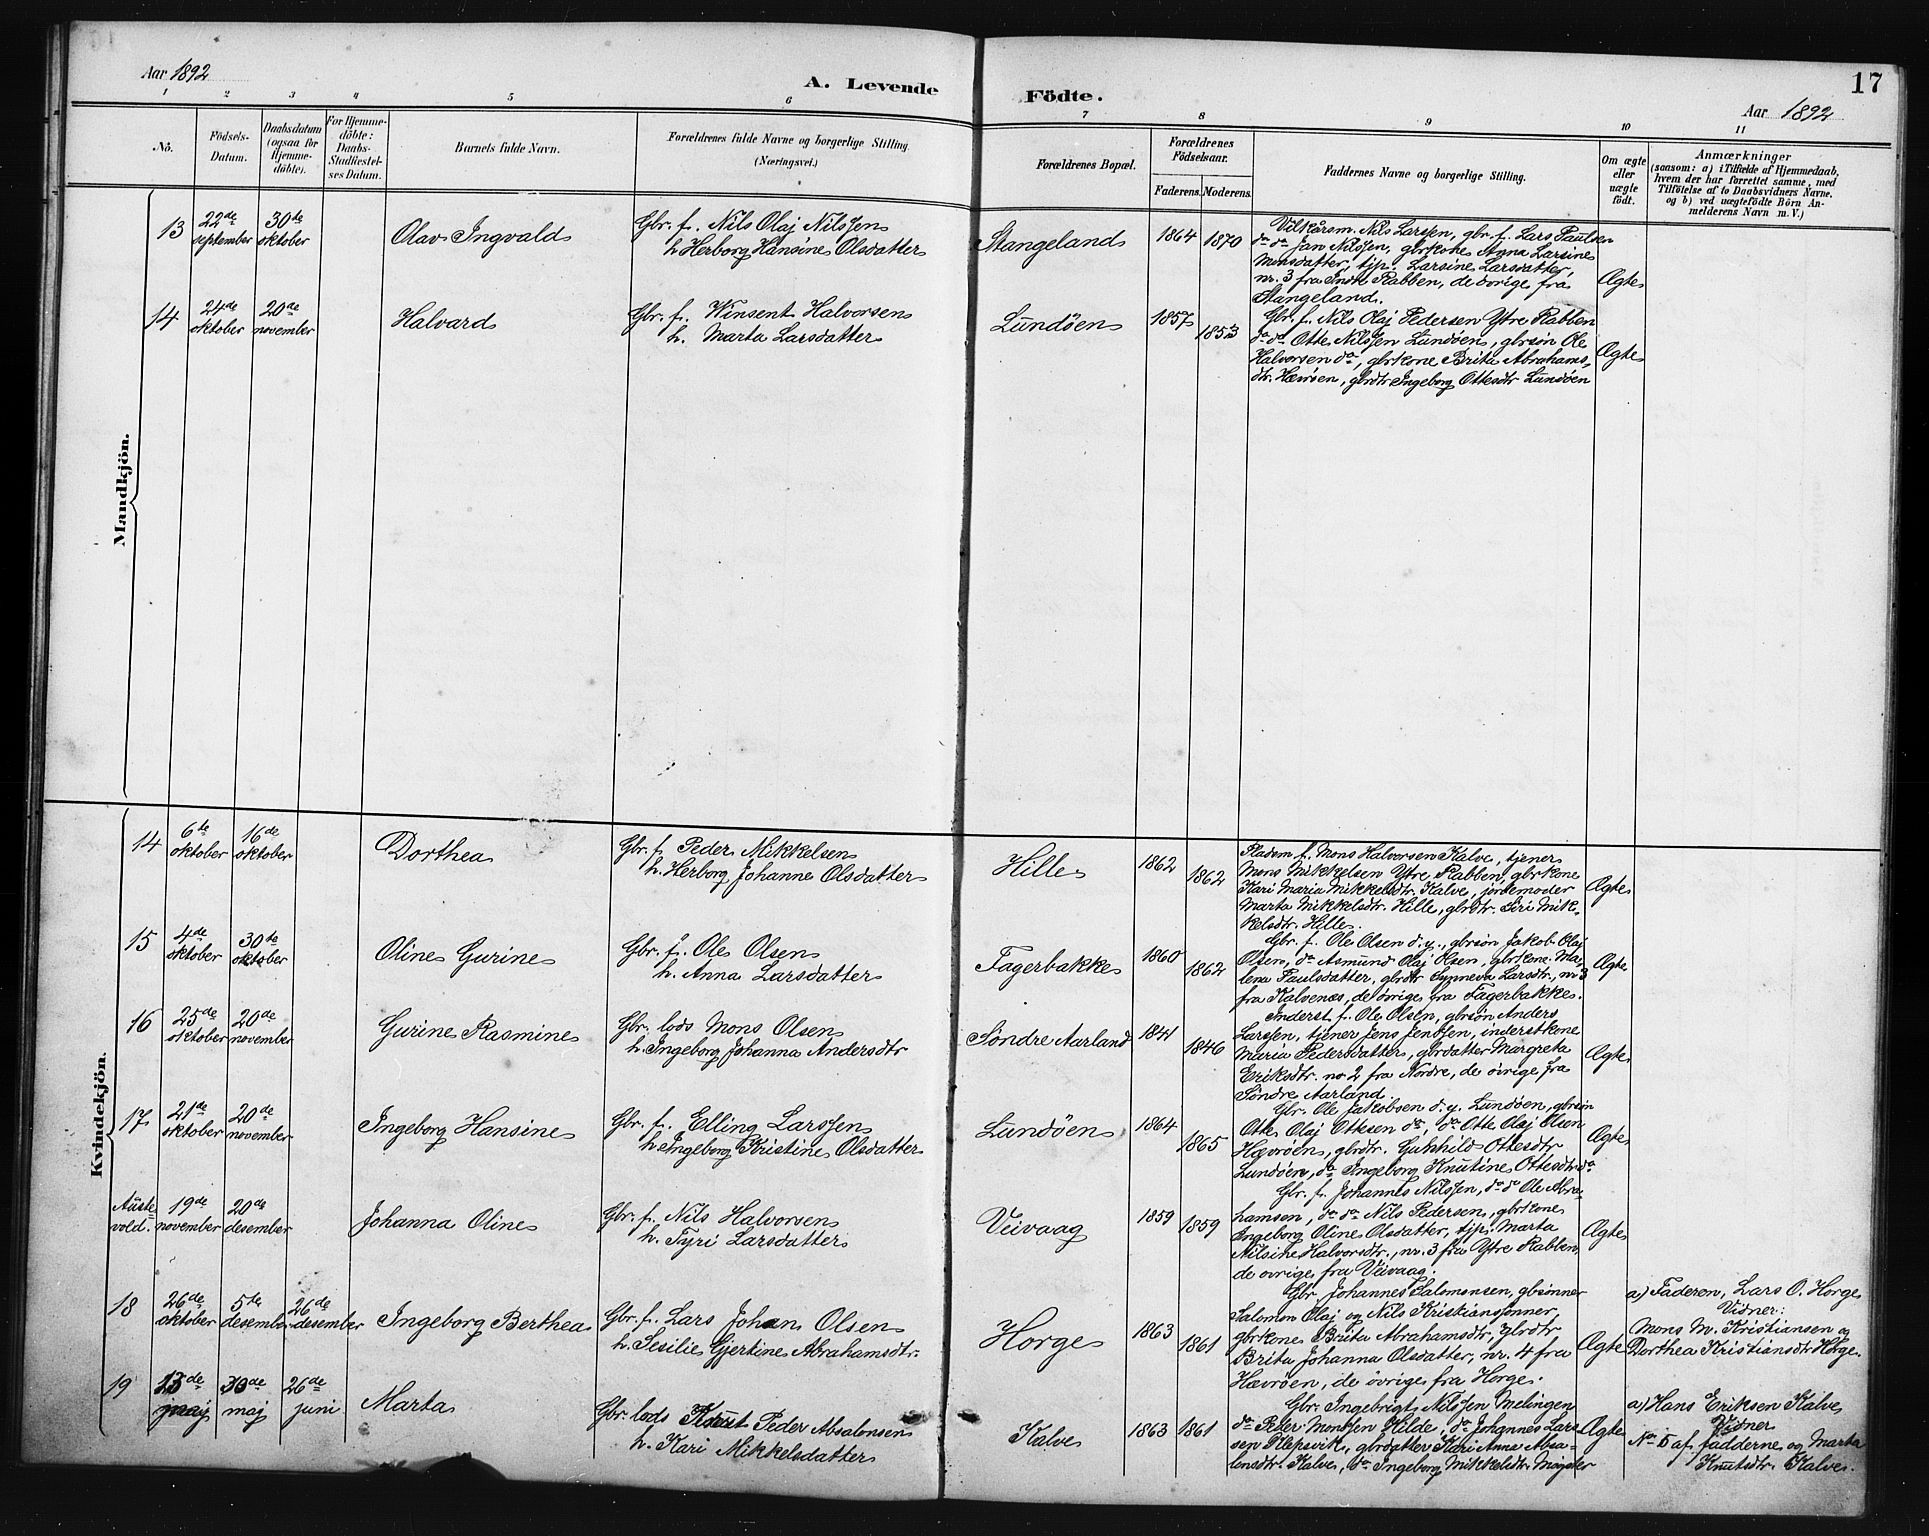 Aar 1892
A. Levende Födte.
17
Aar 1892
1 2 3 4 5 6 7 8 9 10 11
No.
Födsels-
Datum.
Daabsdatum
(ogsaa for
Hjemme-
döbte).
For Hjemme-
döbte:
Daabs-
Stadfæstel-
ses Datum.
Barnets fulde Navn.
Forældrenes fulde Navne og borgerlige Stilling
(Næringsvei.)
Forældrenes Bopæl.
Forældrenes
Födselsaar.
Faderens. Moderens.
Faddernes Navne og borgerlige Stilling.
Om ægte
eller
uægte
födt.
Anmærkninger
(saasom: a) i Tilfælde af Hjemmedaab,
hvem der har forrettet samme, med
Tilföielse af to Daabsvidners Navne,
og b) ved uægtefödte Börn An-
melderens Navn m. V.)
Mandkjön.
13
22de
september
30te
oktober
Olav Ingvald
Gbr. f. Nils Olaj Nilssen
h. Herborg Hansine Olsdatter
Stangeland
1864
1870
Vilkårsm. Nils Larssen, gbr. f. Lars Paulsen
do do Jan Nilssen, gbrkone Anna Larsine
Monsdatter, tjp. Larsine Larsdatter,
nr. 3 fra Indre Rabben, de övrige fra
Stangeland.
Ægte
14
24de
oktober
20de
november
Halvard
Gbr. f. Winsent Halvorsen
h. Marta Larsdatter
Lundöen
1857
1853
Gbr. f. Nils Olaj Pedersen Ytre Rabben
do do Otte Nilssen Lundöen, gbrsön Ole
Halvorsen do, gbrkone Brita Abrahams-
dtr. Hævröen, gbrdtr Ingeborg Ottesdtr Lundöen
Ægte
Kvindekjön.
14
6te
oktober
16de
oktober
Dorthea
Gbr. f. Peder Mikkelsen
h. Herborg Johanne Olsdatter
Hille
1862
1862
Pladsm. f. Mons Halvorsen Kalve, tjener
Mons Mikkelsen Ytre Rabben, gbrkone
Kari Maria Mikkelsdtr. Kalve, jordemoder
Marta Mikkelsdtr. Hille, gbrdtr. Siri Mik-
kelsdtr. Hille.
Ægte
15
4de
oktober
30te
oktober
Oline Gurine
Gbr. f. Ole Olsen
h. Anna Larsdatter
Fagerbakke
1860
1862
Gbr. f. Ole Olsen d. y., gbrsön Jakob Olaj
Olsen, do Asmund Olaj Olsen, gbrkone Ma-
lena Paulsdatter, gbrdtr Synneva Larsdtr., nr 3
fra Kalvenes, de övrige fra Fagerbakke.
Ægte
16
25de
oktober
20de
november
Gurine Rasmine
Gbr. lods Mons Olsen
h. Ingeborg Johanna Andersdtr
Söndre Aarland
1841
1846
Inderst f. Ole Olsen, gbrsön Anders
Larssen, tjener Jens Jenssen, inderstkone
Maria Pedersdatter, gbrdatter Margreta
Eriksdtr. no 2 fra Nordre, de övrige fra
Söndre Aarland.
Ægte
17
21de
oktober
20de
november
Ingeborg Hansine
Gbr. f. Elling Larssen
h. Ingeborg Kristine Olsdatter
Lundöen
1864
1865
Gbr. Ole Jakobsen d. y. Lundöen, gbrsön
Otte Olaj Ottesen do, do Otte Olaj Olsen
Hævröen, gbrdtr. Gunhild Ottesdtr
Lundöen, do Ingeborg Knutine Ottesdtr do
Ægte
Auste-
vold.
19de
november
20de
desember
Johanna Oline
Gbr. f. Nils Halvorsen
h. Tyri Larsdatter
Veivaag
1859
1859
Gbr. f. Johannes Nilssen, do do Ole Abra-
hamsen, do do Nils Pedersen, gbrkone
Ingeborg Oline Olsdatter, tjp. Marta
Nilsine Halvorsdtr., nr. 3 fra Ytre Rabben,
de övrige fra Veivaag.
Ægte
18
26de
oktober
5te
desember
26de
desember
Ingeborg Berthea
Gbr. f. Lars Johan Olsen
h. Sesilie Gjertine Abrahamsdtr.
Horge
1863
1861
Gbr. Johannes Salomonsen, gbrsönner
Salomon Olaj og Nils Kristianssönner,
gbrkone Brita Abrahamsdtr, gbrdtr
Brita Johanna Olsdatter, nr. 4 fra
Hævröen, de övrige fra Horge.
Ægte
a) Faderen, Lars O. Horge
Vidner:
Mons M. Kristiansen og
Dorthea Kristiansdtr Horge.
19
13de
maj
30de
maj
26de
juni
Marta
Gbr. lods Knut Peder Absalonsen
h. Kari Mikkelsdatter
Kalve
1863
1861
Gbr. Ingebrigt Nilssen Melingen
do Peter Monssen Hilde, do Johannes Lars-
sen Klepsvik, gbrdatter Kari Anne Absa-
lonsdtr. Kalve, do Ingeborg Mikkelsdtr. Møgster
Ægte
a) Hans Eriksen Kalve
Vidner
No 5 af fadderne og Marta
Knutsdtr. Kalve.